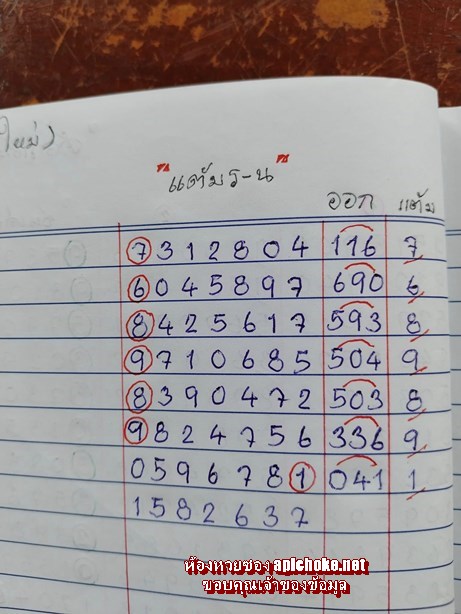 ใหม่)
"แต้มร-น"
ออก แต้ม
7312804 116 7
6045897 690 6
8425617 593 8
9710685 504 9
8390472 503 8
9824756 336 9
0596781 041 1
1582637
ห้องหวยซอง apichoke.net
ขอบคุณเจ้าของข้อมูล